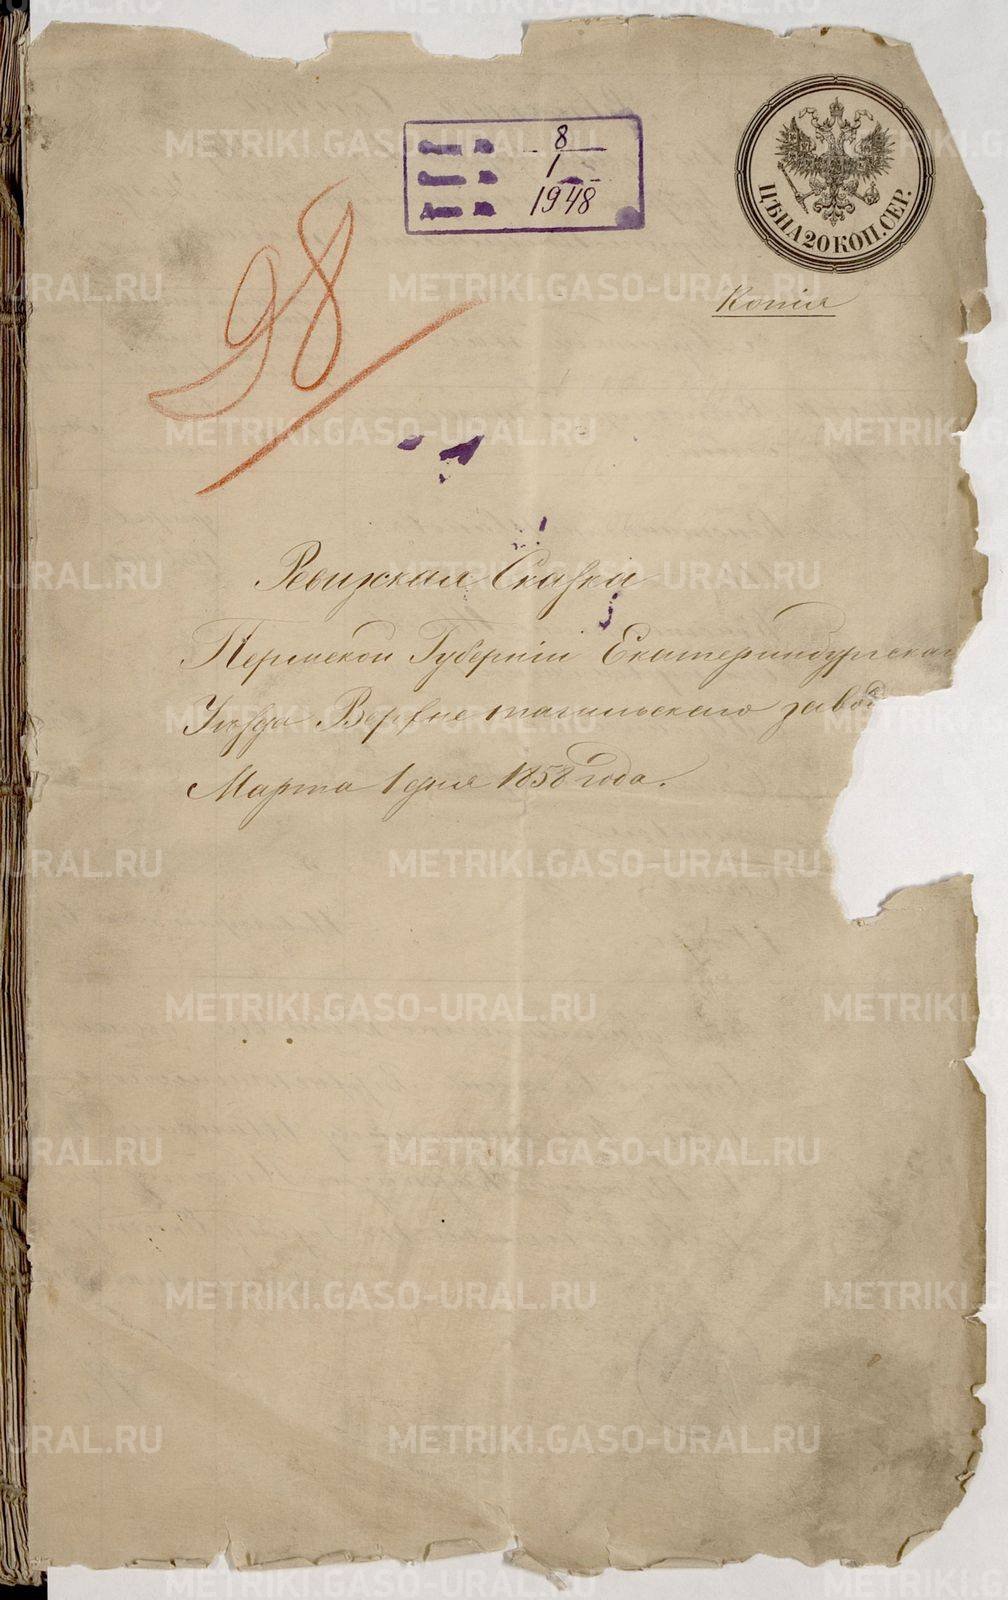 Фонд № 8
Опись № 1
Дело № 1948
ЦѢНА 20 КОП. СЕР.
Копія
98
Ревизская Сказка
Пермской Губерніи Екатеринбургскаго
Уѣзда Верхне тагильскаго завод
Марта 1 дня 1858 года.
METRIKI.GASO-URAL.RU